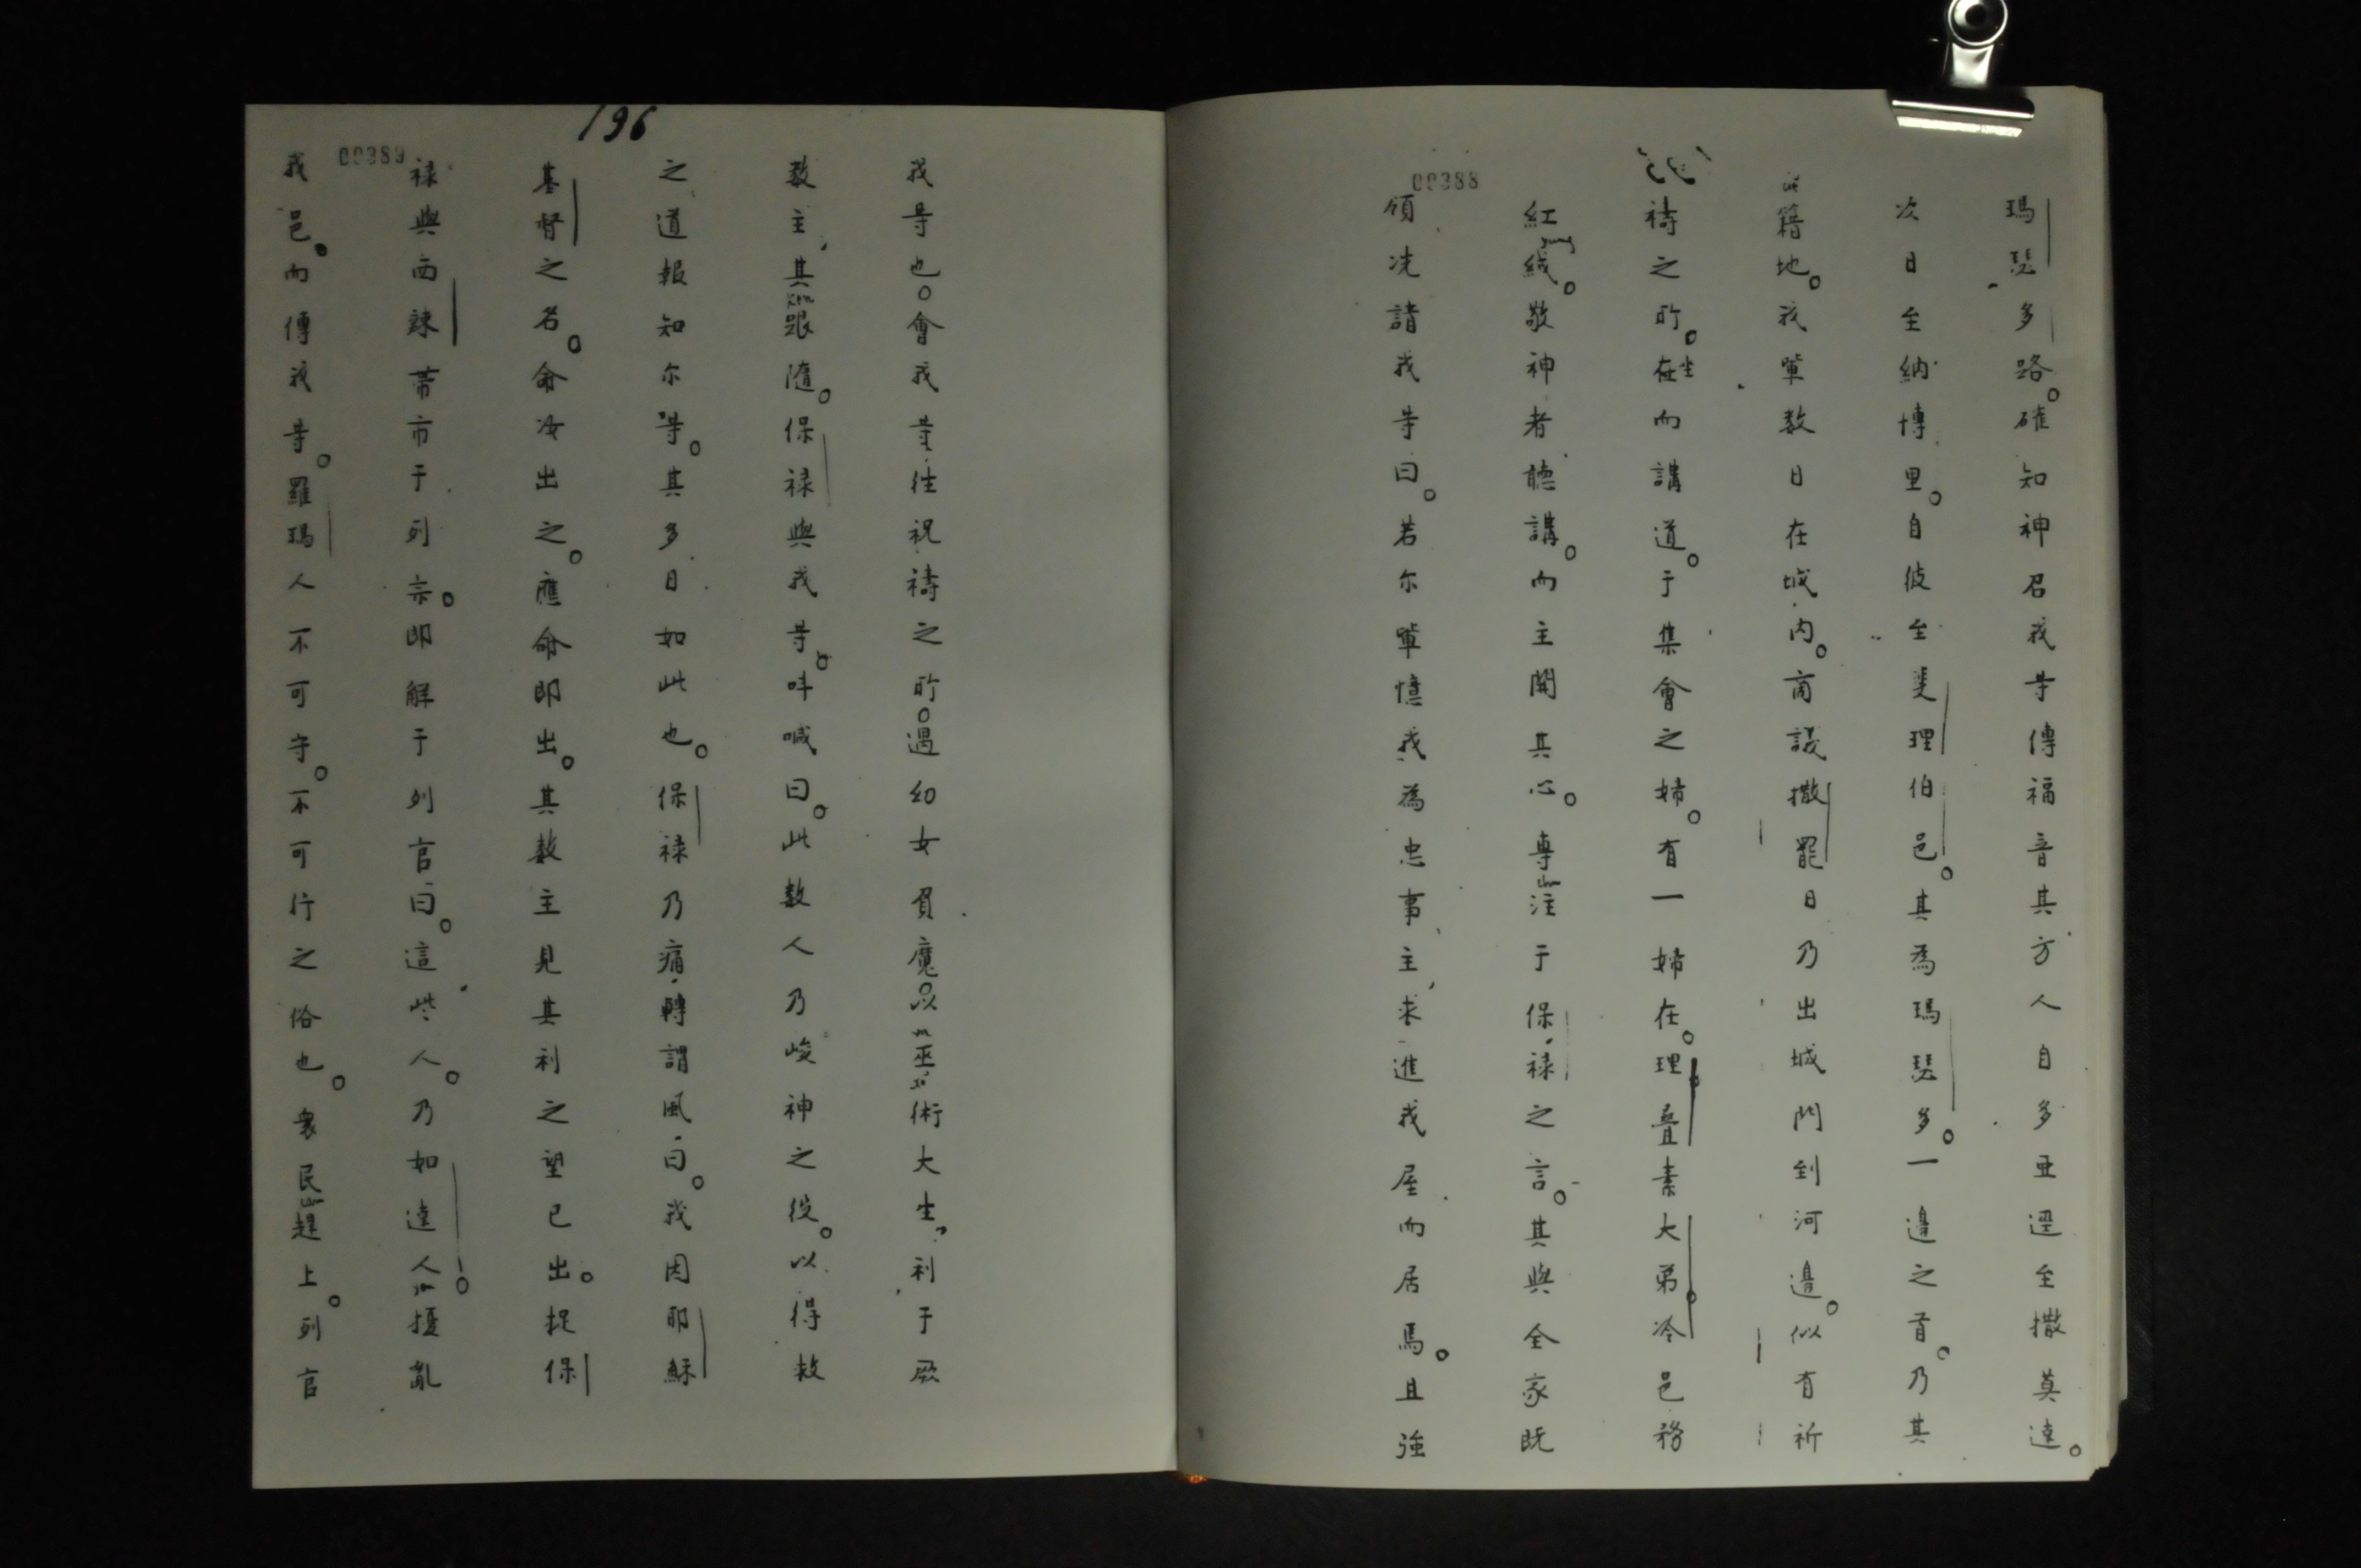 00388
瑪瑟多路。確知神召我等傳福音其方人自多亞逕至撒莫逵。
次日至納博里。自彼至斐理伯邑。其為瑪瑟多。一邊之首。乃其
籍地。我輩數日在城內。商議撒罷日乃出城門到河邊。似有祈
禱之所。在坐而講道。于集會之婦。有一婦在。理疊素大弟冷邑務
紅絨。敬神者聽講。而主開其心。專注于保祿之言。其與全家既
領洗諸我等曰。若尔輩憶我為忠事主，求進我屋而居焉。且強
196
00389
我等也。會我等往祝禱之所。遇幼女負魔。以巫術大生，利于厥
数主，其跟隨。保祿與我等。呌喊曰。此數人乃峻神之役。以得救
之道報知尔等。其多日如此也。保祿乃痛轉謂風曰。我因耶穌
基督之名。命汝出之。應命即出。其数主見其利之望已出。捉保
祿與西辣帶市于列宗。即解于列官曰。這些人。乃如達人。擾亂
我邑。而傳我等。羅瑪人不可守。不可行之俗也。衆民趕上。列官